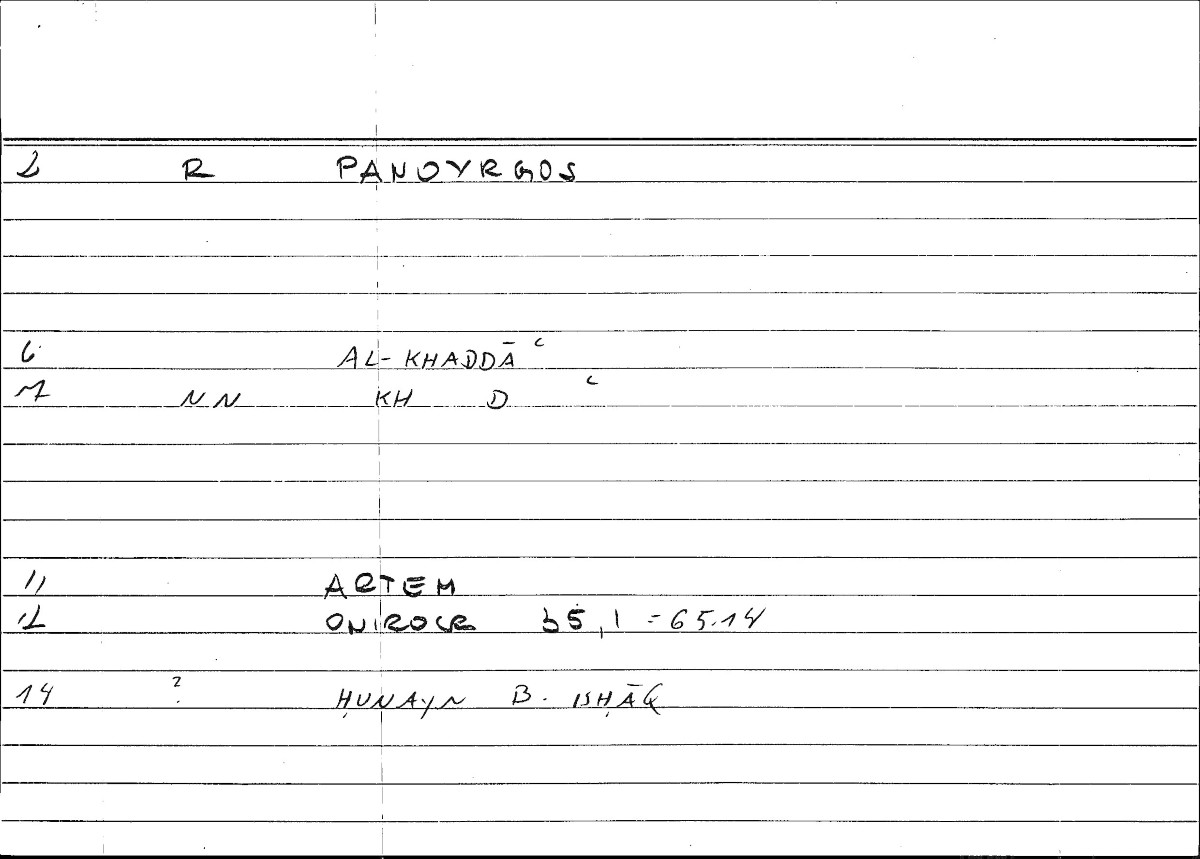 2 R PANOYRGOS
6 AL-KHADDĀʿ
7 NN KH D ʿ
11 ARTEM
12 ONIROCR 65,1 = 65.14
14 ? ḤUNAYN B. ISḤĀQ